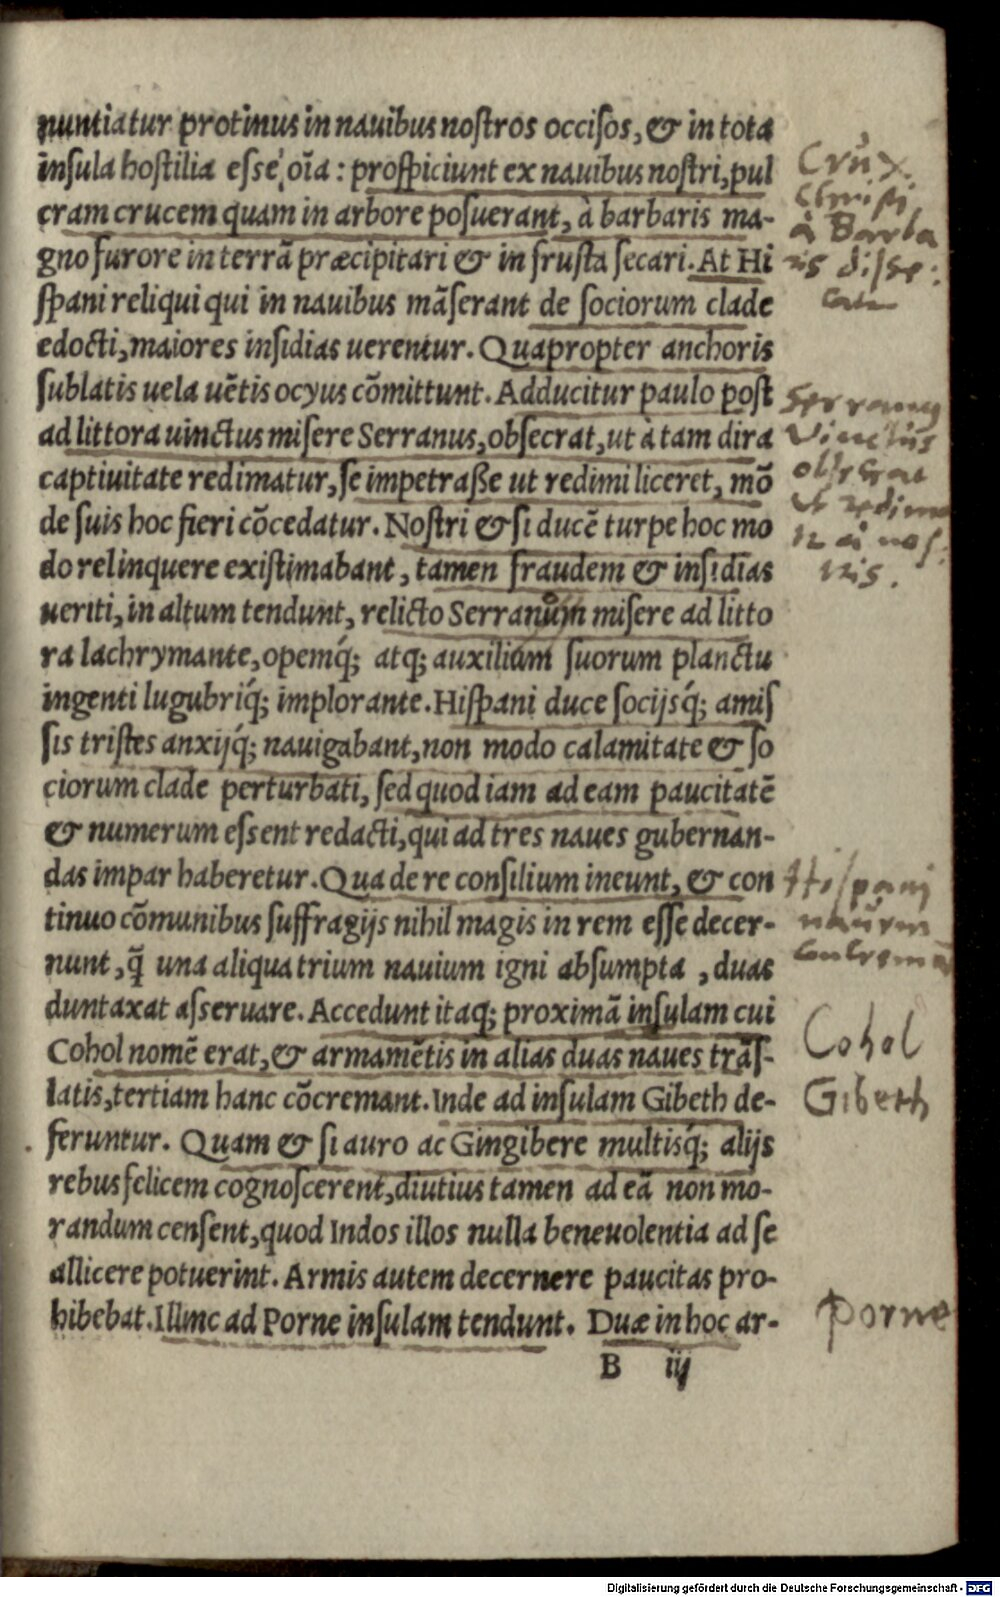 nuntiatur protinus in nauibus nostros occisos, & in tota
insula hostilia esse oīa : prospiciunt ex nauibus nostri, pul
cram crucem quam in arbore posuerant, à barbaris ma-
gno furore in terrā præcipitari & in frusta secari. At Hi
spani reliqui qui in nauibus māserant de sociorum clade
edocti, maiores insidias uerentur. Quapropter anchoris
sublatis uela uētis ocyus cōmittunt. Adducitur paulo post
ad littora uinctus misere Serranus, obsecrat, ut à tam dira
captiuitate redimatur, se impetraße ut redimi liceret, mō
de suis hoc fieri cōcedatur. Nostri & si ducē turpe hoc mo
do relinquere existimabant, tamen fraudem & insidias
ueriti, in altum tendunt, relicto Serranum misere ad litto
ra lachrymante, opemq́; atq; auxilium suorum planctu
ingenti lugubriq́; implorante. Hispani duce socijsq́; amis
sis tristes anxijq́; nauigabant, non modo calamitate & so
ciorum clade perturbati, sed quod iam ad eam paucitatē
& numerum essent redacti, qui ad tres naues gubernan-
das impar haberetur. Qua de re consilium ineunt, & con
tinuo cōmunibus suffragijs nihil magis in rem esse decer-
nunt, q̃ una aliqua trium nauium igni absumpta , duas
duntaxat asseruare. Accedunt itaq; proximā insulam cui
Cohol nomē erat, & armamētis in alias duas naues trās-
latis, tertiam hanc cōcremant. Inde ad insulam Gibeth de-
feruntur. Quam & si auro ac Gingibere multisq́; alijs
rebus felicem cognoscerent, diutius tamen ad eā non mo-
randum censent, quod Indos illos nulla beneuolentia ad se
allicere potuerint. Armis autem decernere paucitas pro-
hibebat. Illinc ad Porne insulam tendunt. Duæ in hoc ar-
B iij
Crux
Christi
à Barba
ris disse:
cata
Serranus
Vinctus
obsecrat
ut redima
tr à nos:
tris.
Hispani
navem
concremāt
Cohol
Gibeth
Porne
Digitalisierung gefördert durch die Deutsche Forschungsgemeinschaft - DFG